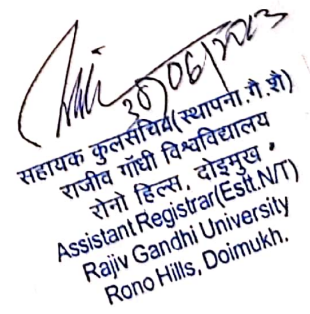 30/06/2023
सहायक कुलसचिव(स्थापना.गै.शै)
राजीव गाँधी विश्वविद्यालय
रोनो हिल्स, दोइमुख .
Assistant Registrar(Estt.N/T)
Rajiv Gandhi University
Rono Hills, Doimukh.